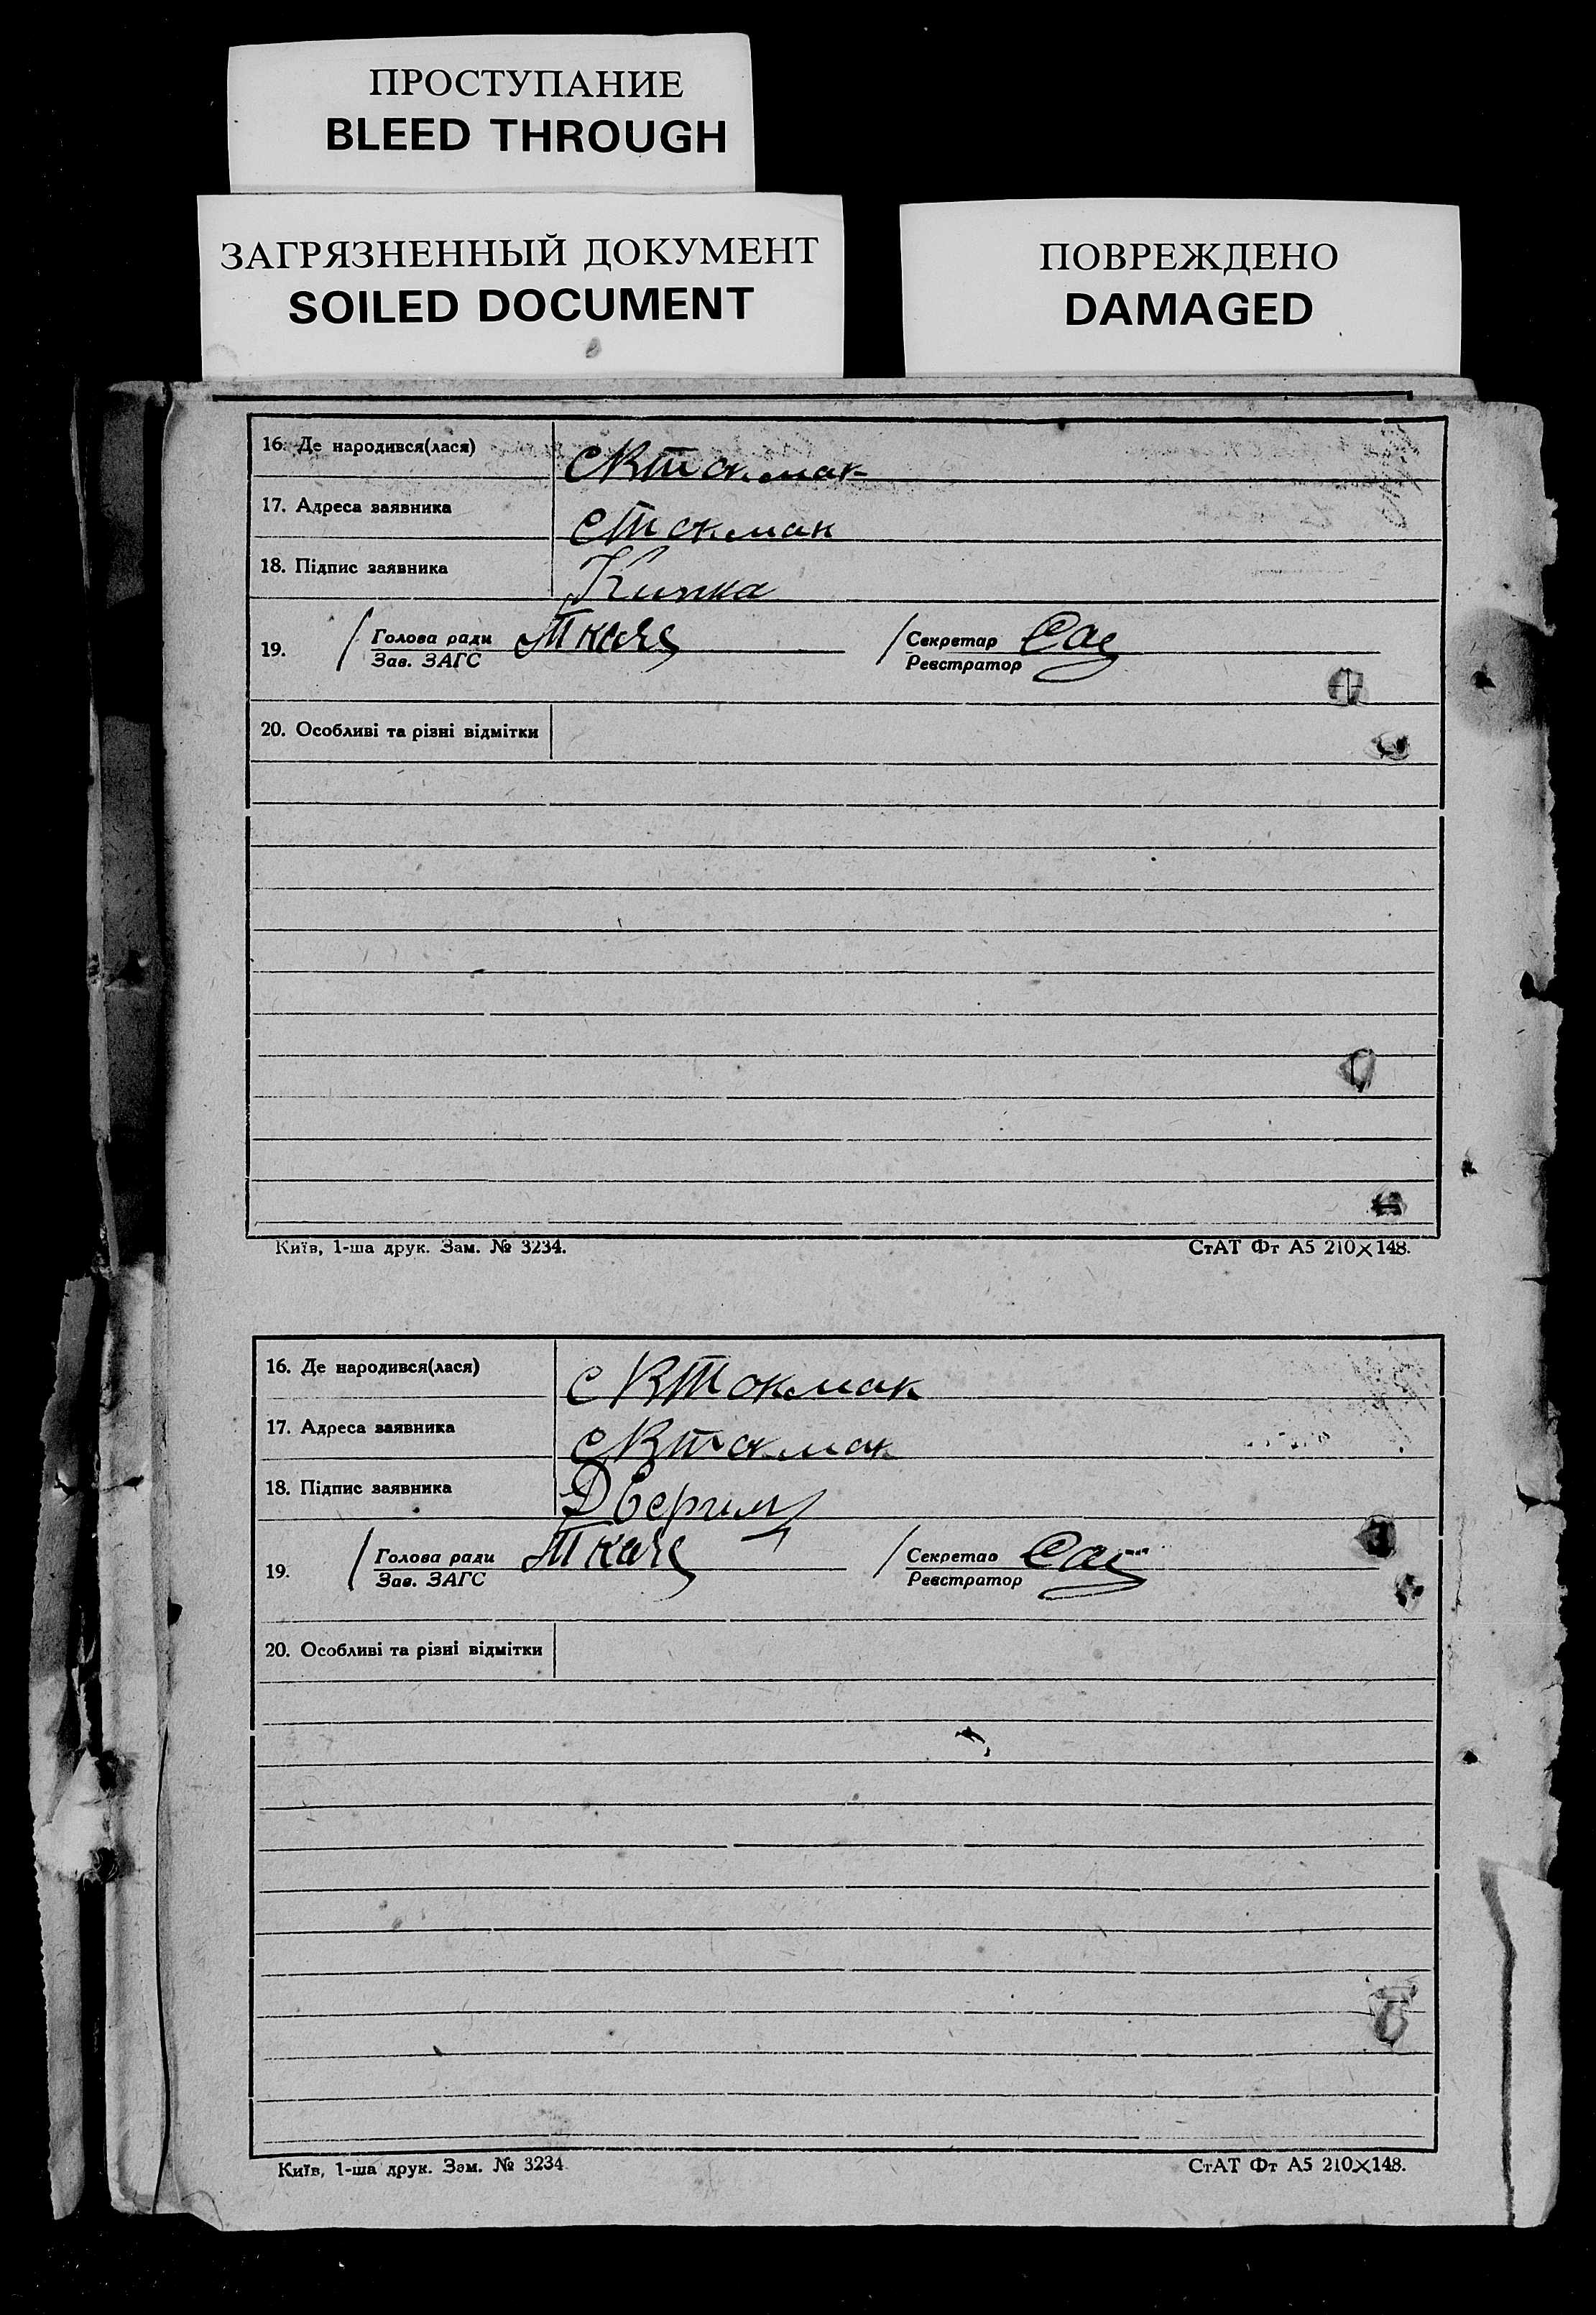 ПРОСТУПАНИЕ
BLEED THROUGH
ЗАГРЯЗНЕННЫЙ ДОКУМЕНТ
SOILED DOCUMENT
ПОВРЕЖДЕНО
DAMAGED
16. Де народився(лася) с ВТокмак
17. Адреса заявника с Токмак
18. Підпис заявника Кипка
19. Голова ради Ткаче Секретар Сас
Зав. ЗАГС Реєстратор
20. Особливі та різні відмітки
Київ, 1-ша друк. Зам. № 3234. СтАТ Фт А5 210×148.
16. Де народився(лася) с ВТокмак
17. Адреса заявника с ВТокмак
18. Підпис заявника
19. Голова ради Ткаче Секретар Сас
Зав. ЗАГС Реєстратор
20. Особливі та різні відмітки
Київ, 1-ша друк. Зам. № 3234 СтАТ Фт А5 210×148.